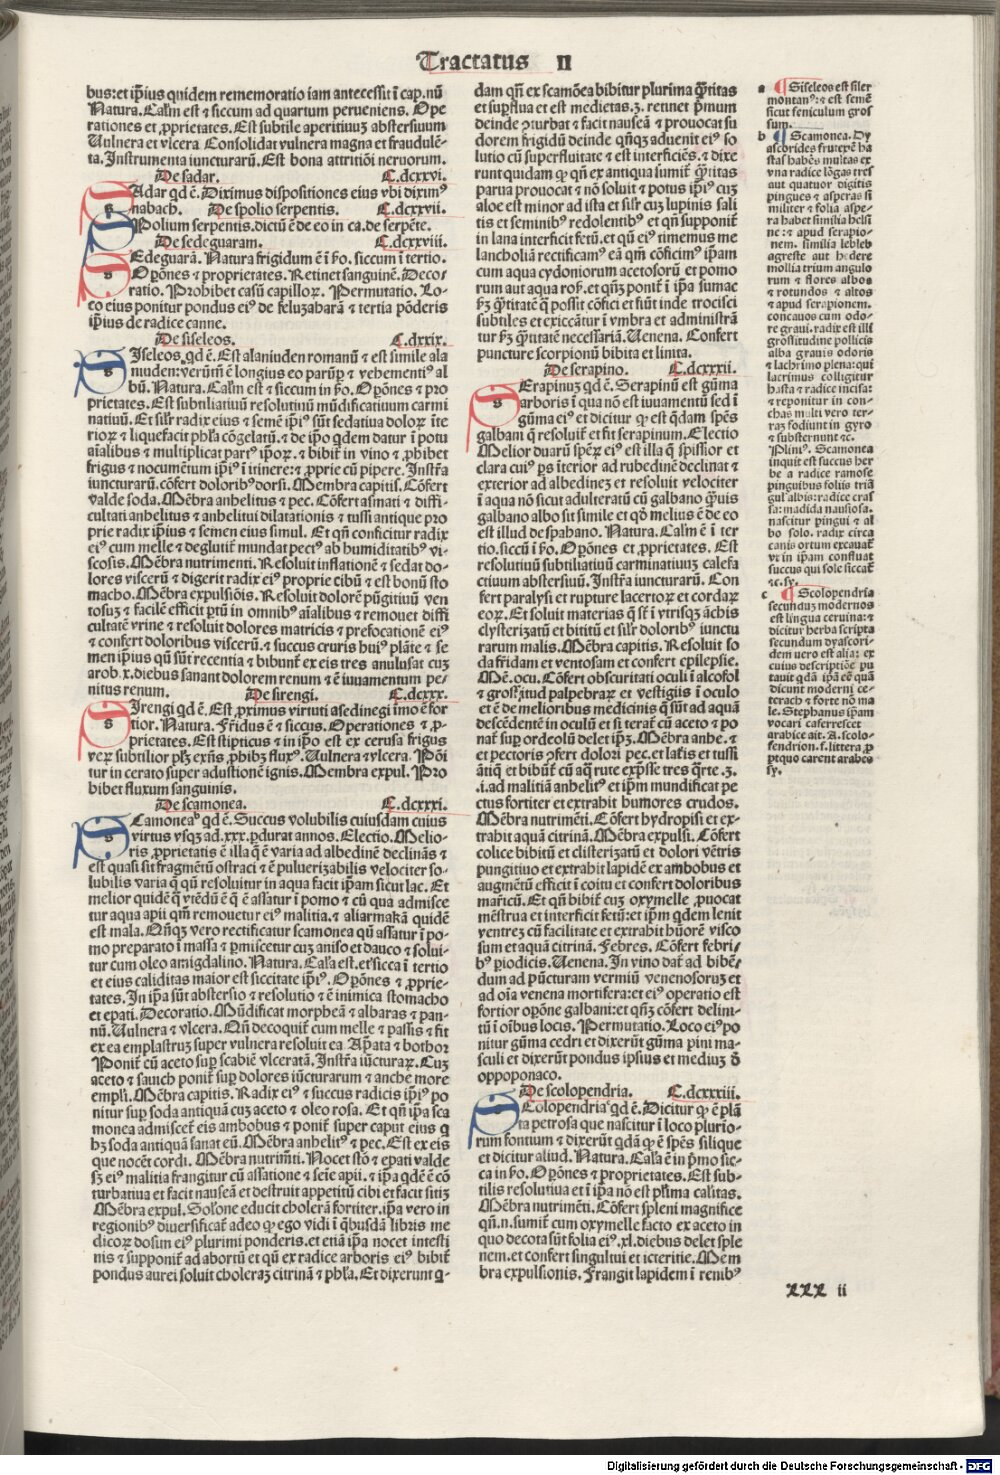 Tractatus II
bus: et ip̄ius quidem rememoratio iam antecessit ī cap. nū
Natura. Cal̄m est ⁊ siccum ad quartum perueniens. Ope
rationes et ꝓprietates. Est subtile aperitiuuꝫ abstersiuum
Uulnera et vlcera Consolidat vulnera magna et fraudulē-
ta. Instrumenta iuncturarū. Est bona attritiōi neruorum.
De sadar. C. dcxxvi.
SAdar qd ē. Diximus dispositiones eius vbi diximꝰ
nabach. De spolio serpentis. C. dcxxvii.
SPolium serpentis. dictū ē de eo in ca. de serpēte.
De sedeguaram. C. dcxxviii.
SEdeguarā. Natura frigidum ē ī ṡo. siccum ī tertio.
Oꝑōnes ⁊ proprietates. Retinet sanguinē. Deco-
ratio. Prohibet casū capilloꝝ. Permutatio. Lo-
co eius ponitur pondus eiꝰ de feluzabarā ⁊ tertia pōderis
ip̄ius de radice canne.
De siseleos. C. dxxix.
SIseleos. qd ē. Est alaniuden romanū ⁊ est simile ala
niuden: verūm̄ ē longius eo parūꝑ ⁊ vehementiꝰ al
bū. Natura. Cal̄m est ⁊ siccum in ṡo. Oꝑōnes ⁊ pro
prietates. Est subtiliatiuū resolutiuū mūdificatiuum carmi
natiuū. Et sil̄r radix eius ⁊ semē ip̄iꝰ sūt sedatiua doloꝝ īte
rioꝝ ⁊ liquefacit phl̄a cōgelatū. ⁊ de ip̄o qdem datur ī potu
aīalibus ⁊ multiplicat partꝰ ip̄oꝝ. ⁊ bibiť in vino ⁊ ꝓhibet
frigus ⁊ nocumētum ip̄iꝰ ī itinere: ⁊ ꝓprie cū pipere. Instr̄a
iuncturarū. cōfert doloribꝰ dorsi. Membra capitis. Cōfert
valde soda. Mēbra anhelitus ⁊ pec. Cōfert asmati ⁊ diffi-
cultati anhelitus ⁊ anhelitui dilatationis ⁊ tussi antique pro
prie radix ip̄ius ⁊ semen eius simul. Et qn̄ conficitur radix
eiꝰ cum melle ⁊ degluťit mundat pecꝰ ab humiditatibꝰ vi-
scosis. Mēbra nutrimenti. Resoluit inflationē ⁊ sedat do-
lores viscerū ⁊ digerit radix eiꝰ proprie cibū ⁊ est bonū sto
macho. Mēbra expulsiōis. Resoluit dolorē pūgitiuū ven
tosuꝫ ⁊ facilē efficit ꝑtū in omnibꝰ aīalibus ⁊ remouet diffi
cultatē vrine ⁊ resoluit dolores matricis ⁊ prefocationē eiꝰ
⁊ confert doloribus viscerū. ⁊ succus cruris huiꝰ plāte ⁊ se
men ip̄ius qn̄ sūt recentia ⁊ bibunť ex eis tres anulusat cuꝫ
arob. x. diebus sanant dolorem renum ⁊ ē iuuamentum pe-
nitus renum. De sirengi. C. dcxxx.
SIrengi qd ē. Est ꝓximus virtuti asedinegi īmo ē for
tior. Natura. Fr̄idus ē ⁊ siccus. Operationes ⁊ ꝓ-
prietates. Est stipticus ⁊ in ip̄o est ex cerusa frigus
veꝝ subtilior pl̄ꝫ exn̄s ꝓhibꝫ fluxꝰ. Uulnera ⁊ vlcera. Pōi
tur in cerato super adustionē ignis. Membra expul. Pro
bibet fluxum sanguinis.
De scamonea. C. dcxxxi.
SCamonea qd ē. Succus volubilis cuiusdam cuius
virtus vsqꝫ ad. xxx. ꝑdurat annos. Electio. Melio-
ris ꝓprietatis ē illa q̄ ē varia ad albedinē declinās ⁊
est quasi sit fragmētū ostraci ⁊ ē puluerizabilis velociter so-
lubilis varia q̄ qn̄ resoluitur in aqua facit ip̄am sicut lac. Et
melior quidē q̄ vtēdū ē q̄ ē assatur ī pomo ⁊ cū qua admisce
tur aqua apii qm̄ remouetur eiꝰ malitia. ⁊ aliarmakā quidē
est mala. Qn̄qꝫ vero rectificatur scamonea qn̄ assatur ī po-
mo preparato ī massa ⁊ ꝑmiscetur cuꝫ aniso et dauco ⁊ solui-
tur cum oleo amigdalino. Natura. Cal̄a est. et sicca ī tertio
et eius caliditas maior est siccitate ip̄iꝰ. Oꝑōnes ⁊ ꝓprie-
tates. In ip̄a sūt abstersio ⁊ resolutio ⁊ ē inimica stomacho
et epati. Decoratio. Mūdificat morpheā ⁊ albaras ⁊ pan-
nū. Uulnera ⁊ vlcera. Qn̄ decoquiť cum melle ⁊ passis ⁊ fit
ex ea emplastruꝫ super vulnera resoluit ea. Ap̄ata ⁊ bothor
Poniť cū aceto suꝑ scabiē vlceratā. Instr̄a iūcturaꝝ. Cuꝫ
aceto ⁊ sauich poniť suꝑ dolores iūcturarum ⁊ anche more
empl̄i. Mēbra capitis. Radix eiꝰ ⁊ succus radicis ip̄iꝰ po
nitur suꝑ soda antiquā cuꝫ aceto ⁊ oleo rosa. Et qn̄ ip̄a sca
moneā commisceť eis ambobus ⁊ poniť super caput eius q
hꝫ soda antiquā sanat eū. Mēbra anhelitꝰ ⁊ pec. Est ex eis
que nocēt cordi. Mēbra nutrim̄ti. Nocet sto° ⁊ epati valde
sꝫ eiꝰ malitia frangitur cū assatione ⁊ seīe apii. ⁊ ip̄a qdē ē cō
turbatiua et facit nauseā et destruit appetitū cibi et facit sitiꝫ
Mēbra expul. Sol̄one educit cholerā fortiter. ip̄a vero in
regionibꝰ diuersificať adeo ꝙ ego vidi ī qbusdā libris me
dicoꝝ dosim eiꝰ plurimi ponderis. et etiā ip̄a nocet intesti
nis ⁊ supponiť ad abortū et qn̄ ex radice arboris eiꝰ bibiť
pondus aurei soluit choleraꝫ citrinā ⁊ phl̄a. Et dixerunt q-
dam qn̄ ex scamōea bibitur plurima q̄ntitas
et suꝑflua et est medietas. ʒ. retinet pͥmum
deinde ꝯturbat ⁊ facit nauseā ⁊ prouocat su
dorem frigidū deinde qn̄qꝫ aduenit eiꝰ so
lutio cū superfluitate ⁊ est interficiēs. ⁊ dixe
runt quidam ꝙ qn̄ ex antiqua sumiť q̄ntitas
parua prouocat ⁊ nō soluit ⁊ potus ip̄iꝰ cuꝫ
aloe est minor ad ista et sil̄r cuꝫ lupinis sali
tis et seminibꝰ redolentibꝰ et qn̄ supponiť
in lana interficit fetū. et qn̄ eiꝰ timemus me
lancholiā rectificamꝰ eā qm̄ cōficimꝰ ip̄am
cum aqua cydoniorum acetosorū et pomo
rum aut aqua ros̄. et qn̄ꝫ poniť ī ip̄a sumac
ẜꝫ q̄ntitatē q̄ possit cōfici et fiūt inde trocisci
subtiles et exiccātur ī vmbra et administrā
tur ẜꝫ q̄ntitatē necessariā. Uenena. Confert
puncture scorpionū bibita et linita.
De serapino. C. dcxxxii.
SErapinuꝫ qd ē. Serapinū est gūma
arboris ī qua nō est iuuamentū sed ī
gūma eiꝰ et dicitur ꝙ est q̄dam spēs
galbani q̄ resoluiť et fit serapinum. Electio
Melior duarū spērꝝ eiꝰ est illa q̄ spissior et
clara cuiꝰ ꝑs īterior ad rubedinē declinat ⁊
exterior ad albedineꝫ et resoluit velociter
ī aqua nō sicut adulteratū cū galbano q̄uis
galbano albo sit simile et qd̄ melius ē de eo
est illud de spahano. Natura. Cal̄m ē ī ter
tio. siccū ī ṡo. Oꝑōnes et ꝓprietates. Est
resolutiuū subtiliatiuū carminatiuuꝫ calefa
ctiuum abstersiuū. Instr̄a iuncturarū. Con
fert paralysi et rupture lacertoꝝ et cordaꝝ
eoꝝ. Et soluit materias q̄ sť ī vtrisqꝫ āchis
clysterizatū et bititū et sil̄r doloribꝰ iunctu
rarum malis. Mēbra capitis. Resoluit so
da fr̄idam et ventosam et confert epilepsie.
Mē. ocu. Cōfert obscuritati oculi ī alcofol
⁊ grossͥtud palpebraꝝ et vestigiis ī oculo
et ē de melioribus medicinis q̄ sūt ad aquā
descēdentē in oculū et si terať cū aceto ⁊ po
nať suꝑ ordeolū delet ip̄ꝫ. Mēbra anhe. ⁊
et pectoris ꝯfert dolori pec. et lať̄is et tussi
ātiq̄ et bibūť cū aq̄ rute exp̄sse tres q̄rte. ʒ.
.i. ad malitiā anhelitꝰ et ip̄m mundificat pe
ctus fortiter et extrahit humores crudos.
Mēbra nutrimēti. Cōfert hydropisi et ex-
trahit aquā citrinā. Mēbra expulsi. Cōfert
colice bibitū et clisterizatū et dolori vētris
pungitiuo et extrahit lapidē ex ambobus et
augmētū efficit ī coitu et confert doloribus
mať̄ricū. Et qn̄ bibiť cuꝫ oxymelle ꝓuocat
mēstrua et interficit fetū: et ip̄m q̄dem lenit
ventreꝫ cū facilitate et extrahit hūorē visco
sum et aquā citrinā. Febres. Cōfert febri-
bꝰ ꝑiodicis. Uenena. In vino dať ad bibē-
dum ad pūcturam vermiū venenosoruꝫ et
ad oīa venena mortifera: et eiꝰ operatio est
fortior oꝑōne galbani: et qn̄ꝫ cōfert delini-
tū ī oībus locis. Permutatio. Loco eiꝰ po
nitur gūma cedri et dixerūt gūma pini ma-
sculi et dixerūt pondus ipsius et mediuꝫ ð
oppoponaco.
De scolopendria. C. dcxxxiii.
SColopendria qd ē. Dicitur ꝙ ē plā
ta petrosa que nascitur ī loco plurio-
rum fontium ⁊ dixerūt q̄dā ꝙ ē spēs silique
et dicitur aliud. Natura. Cal̄a ē in pͥmo sic-
ca in ṡo. Oꝑōnes ⁊ proprietates. Est sub-
tilis resolutiua et ī ip̄a nō est pl̄ma calitas.
Mēbra nutrimēti. Cōfert spleni magnifice
qn̄. n. sumiť cum oxymelle facto ex aceto in
quo decota sūt folia eiꝰ. xl. diebus delet sple
nem. et confert singultui et icteritie. Mem
bra expulsionis. Frangit lapidem ī renibꝰ
a ¶ Siseleos est siler
montanꝰ: ⁊ est semē
sicut feniculum gros
sum.
b ¶ Scamonea. Dy
ascorides frutexē ha
stas habēs multas ex
vna radice lōgas tres
aut quatuor digitis
pingues ⁊ asperas si
militer ⁊ folia aspe-
ra habet similia helsi
ne: ⁊ apud serapio-
nem. similia lebleb
agreste aut hedere
mollia trium angulo
rum ⁊ flores albos
⁊ rotundos ⁊ altos
⁊ apud serapionem.
concauos cum odo-
re graui. radix est illi
grossitudine pollicis
alba grauis odoris
⁊ lachrimo plena: qui
lacrimus colligitur
hasta ⁊ radice incisa:
⁊ reponitur in con-
chas multi vero ter-
raꝫ fodiunt in gyro
⁊ substernunt ⁊c.
Pliniꝰ. Scamonea
inquit est succus her
be a radice ramose
pinguibus foliis triā
gul̄ albis: radice cras
sa: madida nausiosa.
nascitur pingui ⁊ al
bo solo. radix circa
canis ortum excauať
vt in ip̄am confluat
succus qui sole siccať
⁊c. sy.
c ¶ Scolopendria
secunduꝫ modernos
est lingua ceruina: ⁊
dicitur herba scripta
secundum dyascori-
dem vero est alia: ex
cuius descriptiōe pu
tauit qdā ip̄am eē quā
dicunt moderni ce-
terach ⁊ forte nō ma
le. Stephanus ip̄am
vocari caferrefcet
arabice ait. A. scolo-
fendrion. s. littera ꝓ
p̄tquo carent arabes
sy.
XXX ii
Digitalisierung gefördert durch die Deutsche Forschungsgemeinschaft - DFG